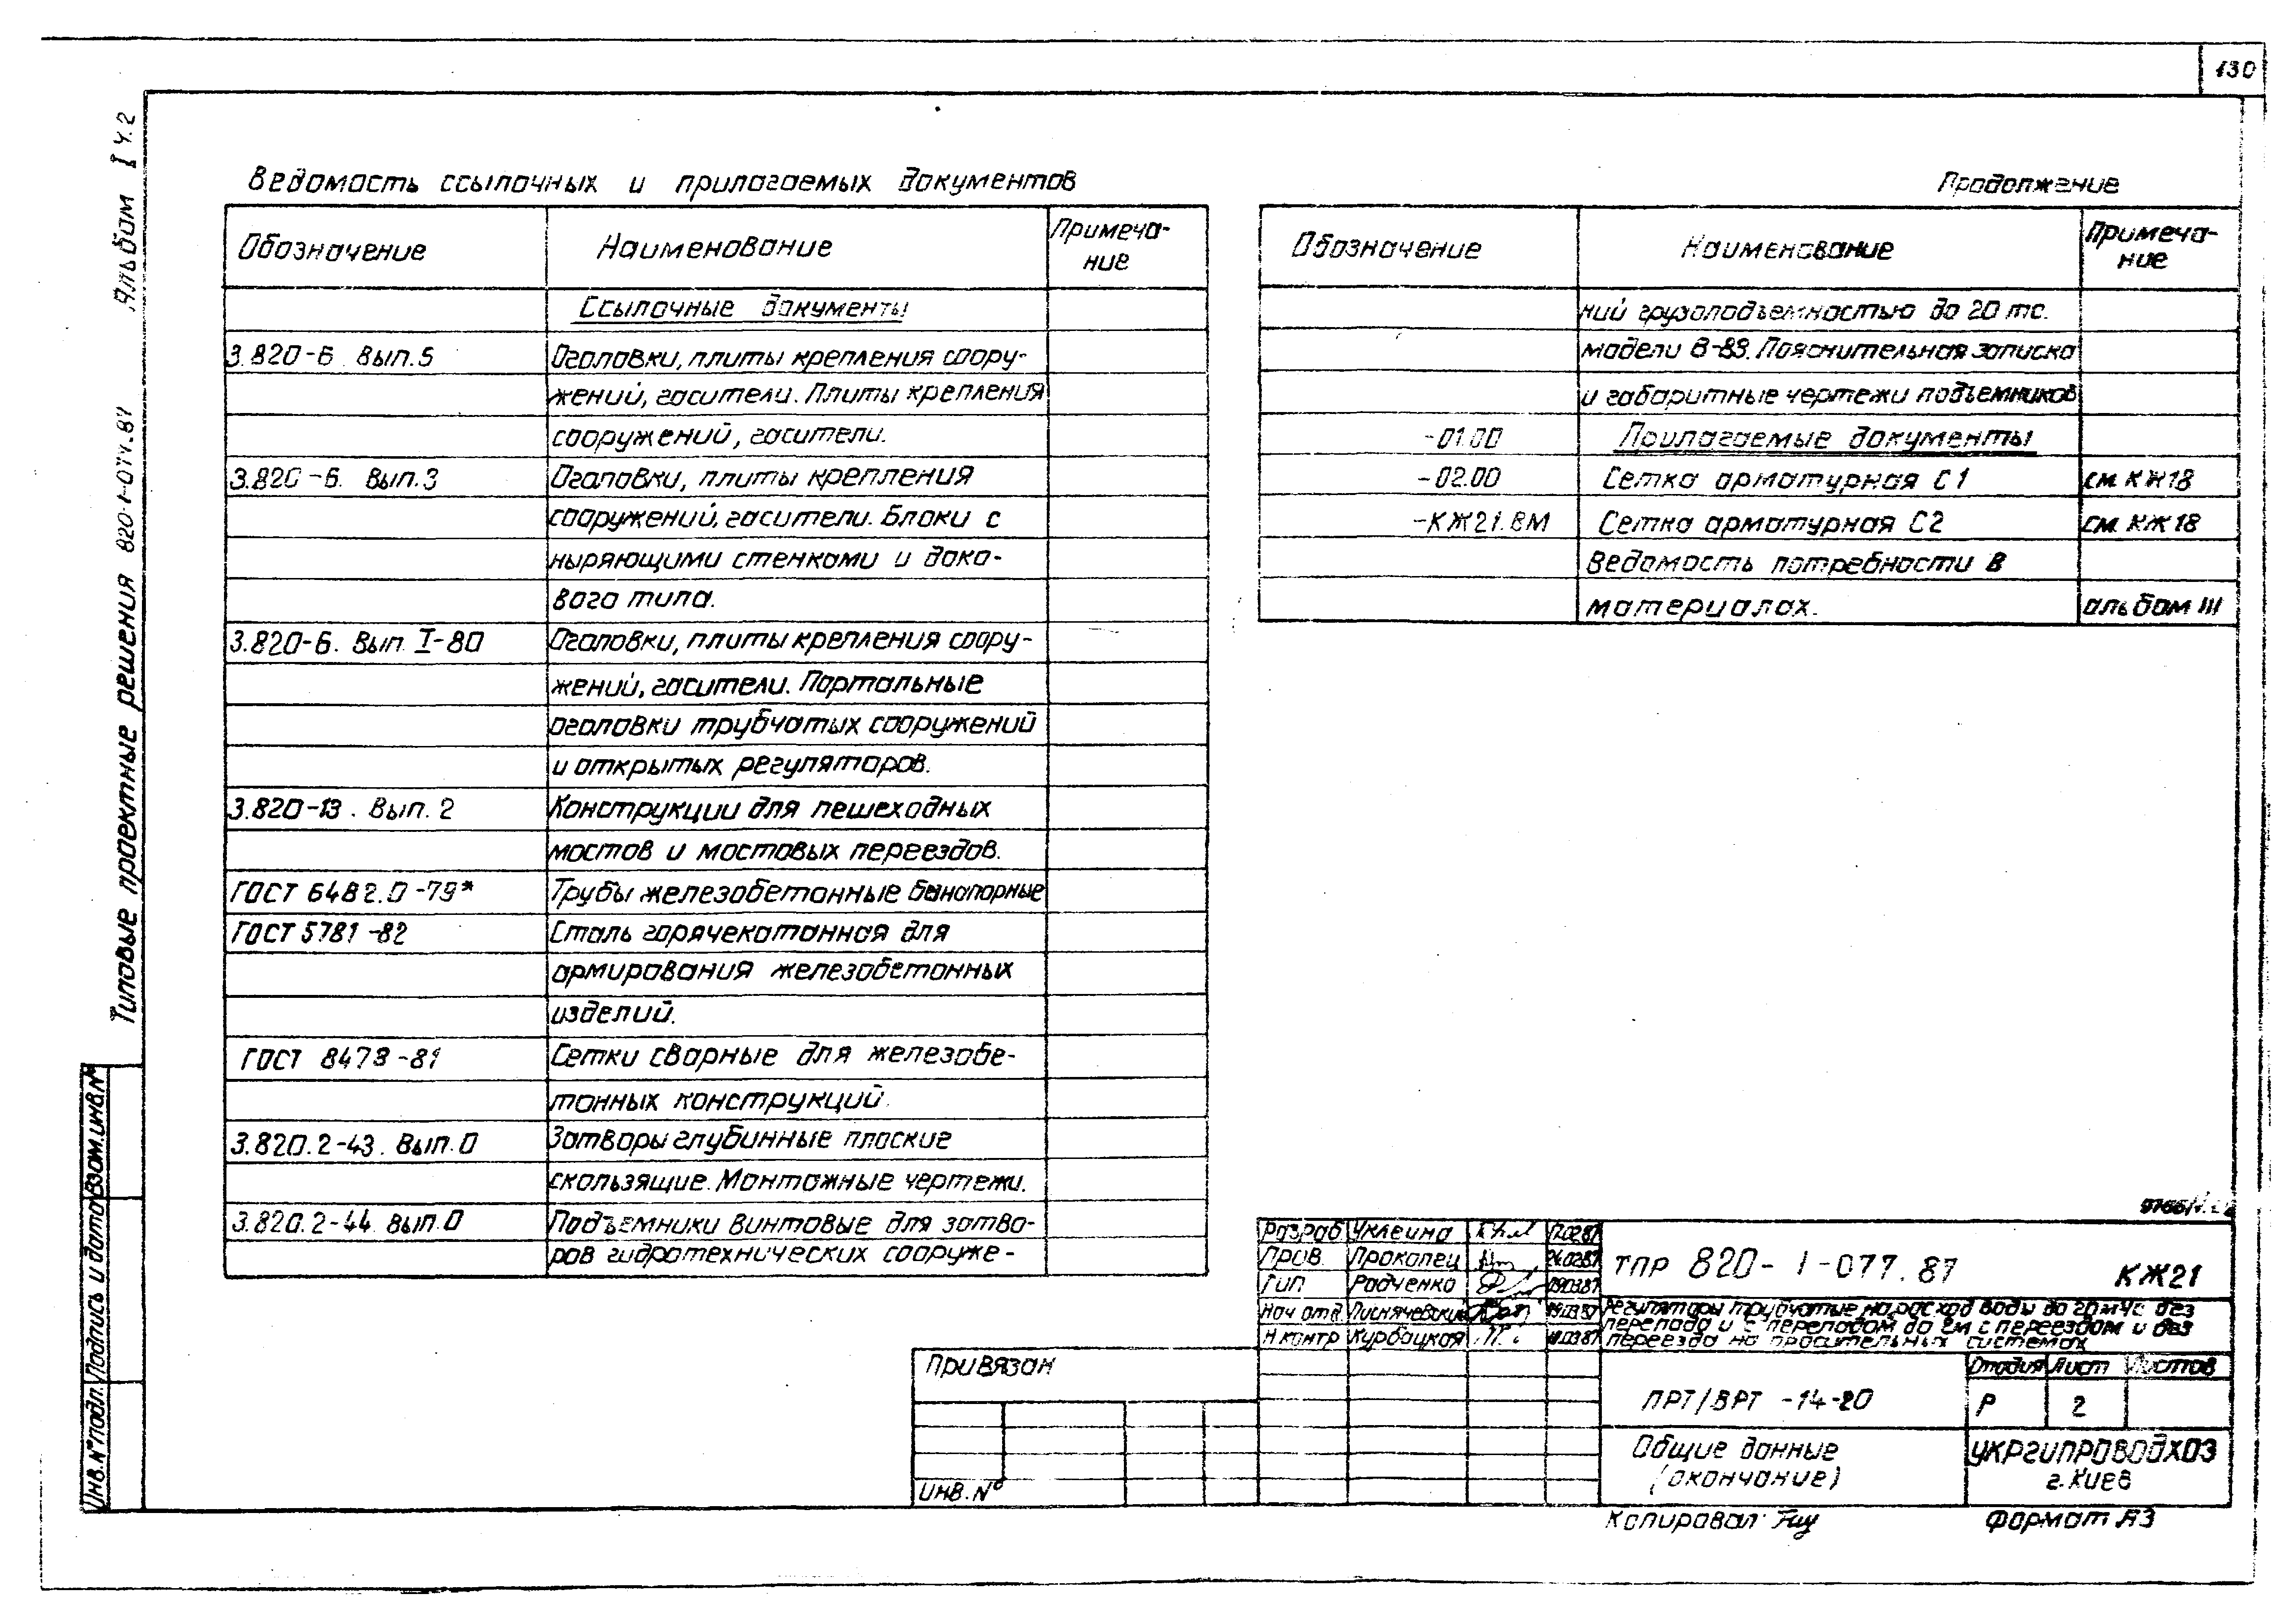 130
Альбом I ч.2
Типовые проектные решения 820-1-077.87
Ведомость ссылочных и прилагаемых документов
Обозначение Наименование Примеча-
ние
Ссылочные документы
3.820-6 Вып.5 Оголовки, плиты крепления соору-
жений, гасители. Плиты крепления
сооружений, гасители.
3.820-6. Вып.3 Оголовки, плиты крепления
сооружений, гасители. Блоки с
ныряющими стенками и доко-
вого типа.
3.820-6. Вып. I-80 Оголовки, плиты крепления соору-
жений, гасители. Портальные
оголовки трубчатых сооружений
и открытых регуляторов.
3.820-13. Вып. 2 Конструкции для пешеходных
мостов и мостовых переездов.
ГОСТ 6482.0-79* Трубы железобетонные безнапорные
ГОСТ 5781-82 Сталь горячекатанная для
армирования железобетонных
изделий.
ГОСТ 8478-81 Сетки сварные для железобе-
тонных конструкций.
3.820.2-43. Вып.0 Затворы глубинные плоские
скользящие. Монтажные чертежи.
3.820.2-44. Вып.0 Подъемники винтовые для затво-
ров гидротехнических сооруже-
Продолжение
Обозначение Наименование Примеча-
ние
ний грузоподъемностью до 20 тс.
модели В-83. Пояснительная записка
и габаритные чертежи подъемников
-01.00 Прилагаемые документы
-02.00 Сетка арматурная С1 см. КЖ18
-КЖ21.ВМ Сетка арматурная С2 см. КЖ18
Ведомость потребности в
материалах. альбом III
Разраб Уклеина 17.02.87
Пров. Прокопец 24.02.87
Гип Радченко 09.03.87
Нач отд. Лиснячевский
Н.контр Курбацкая
ТПР 820-1-077.87 КЖ21
Регуляторы трубчатые на расход воды до 20 м³/с без
перепада и с перепадом до 2м с переездом и без
переезда на оросительных системах
Стадия Лист Листов
ПРТ/ВРТ -14-20 Р 2
Общие данные
(окончание)
УКРГИПРОВОДХОЗ
г.Киев
Привязан
Инв.№
Копировал: Формат А3
Инв.№ подл. Подпись и дата Взам.инв.№